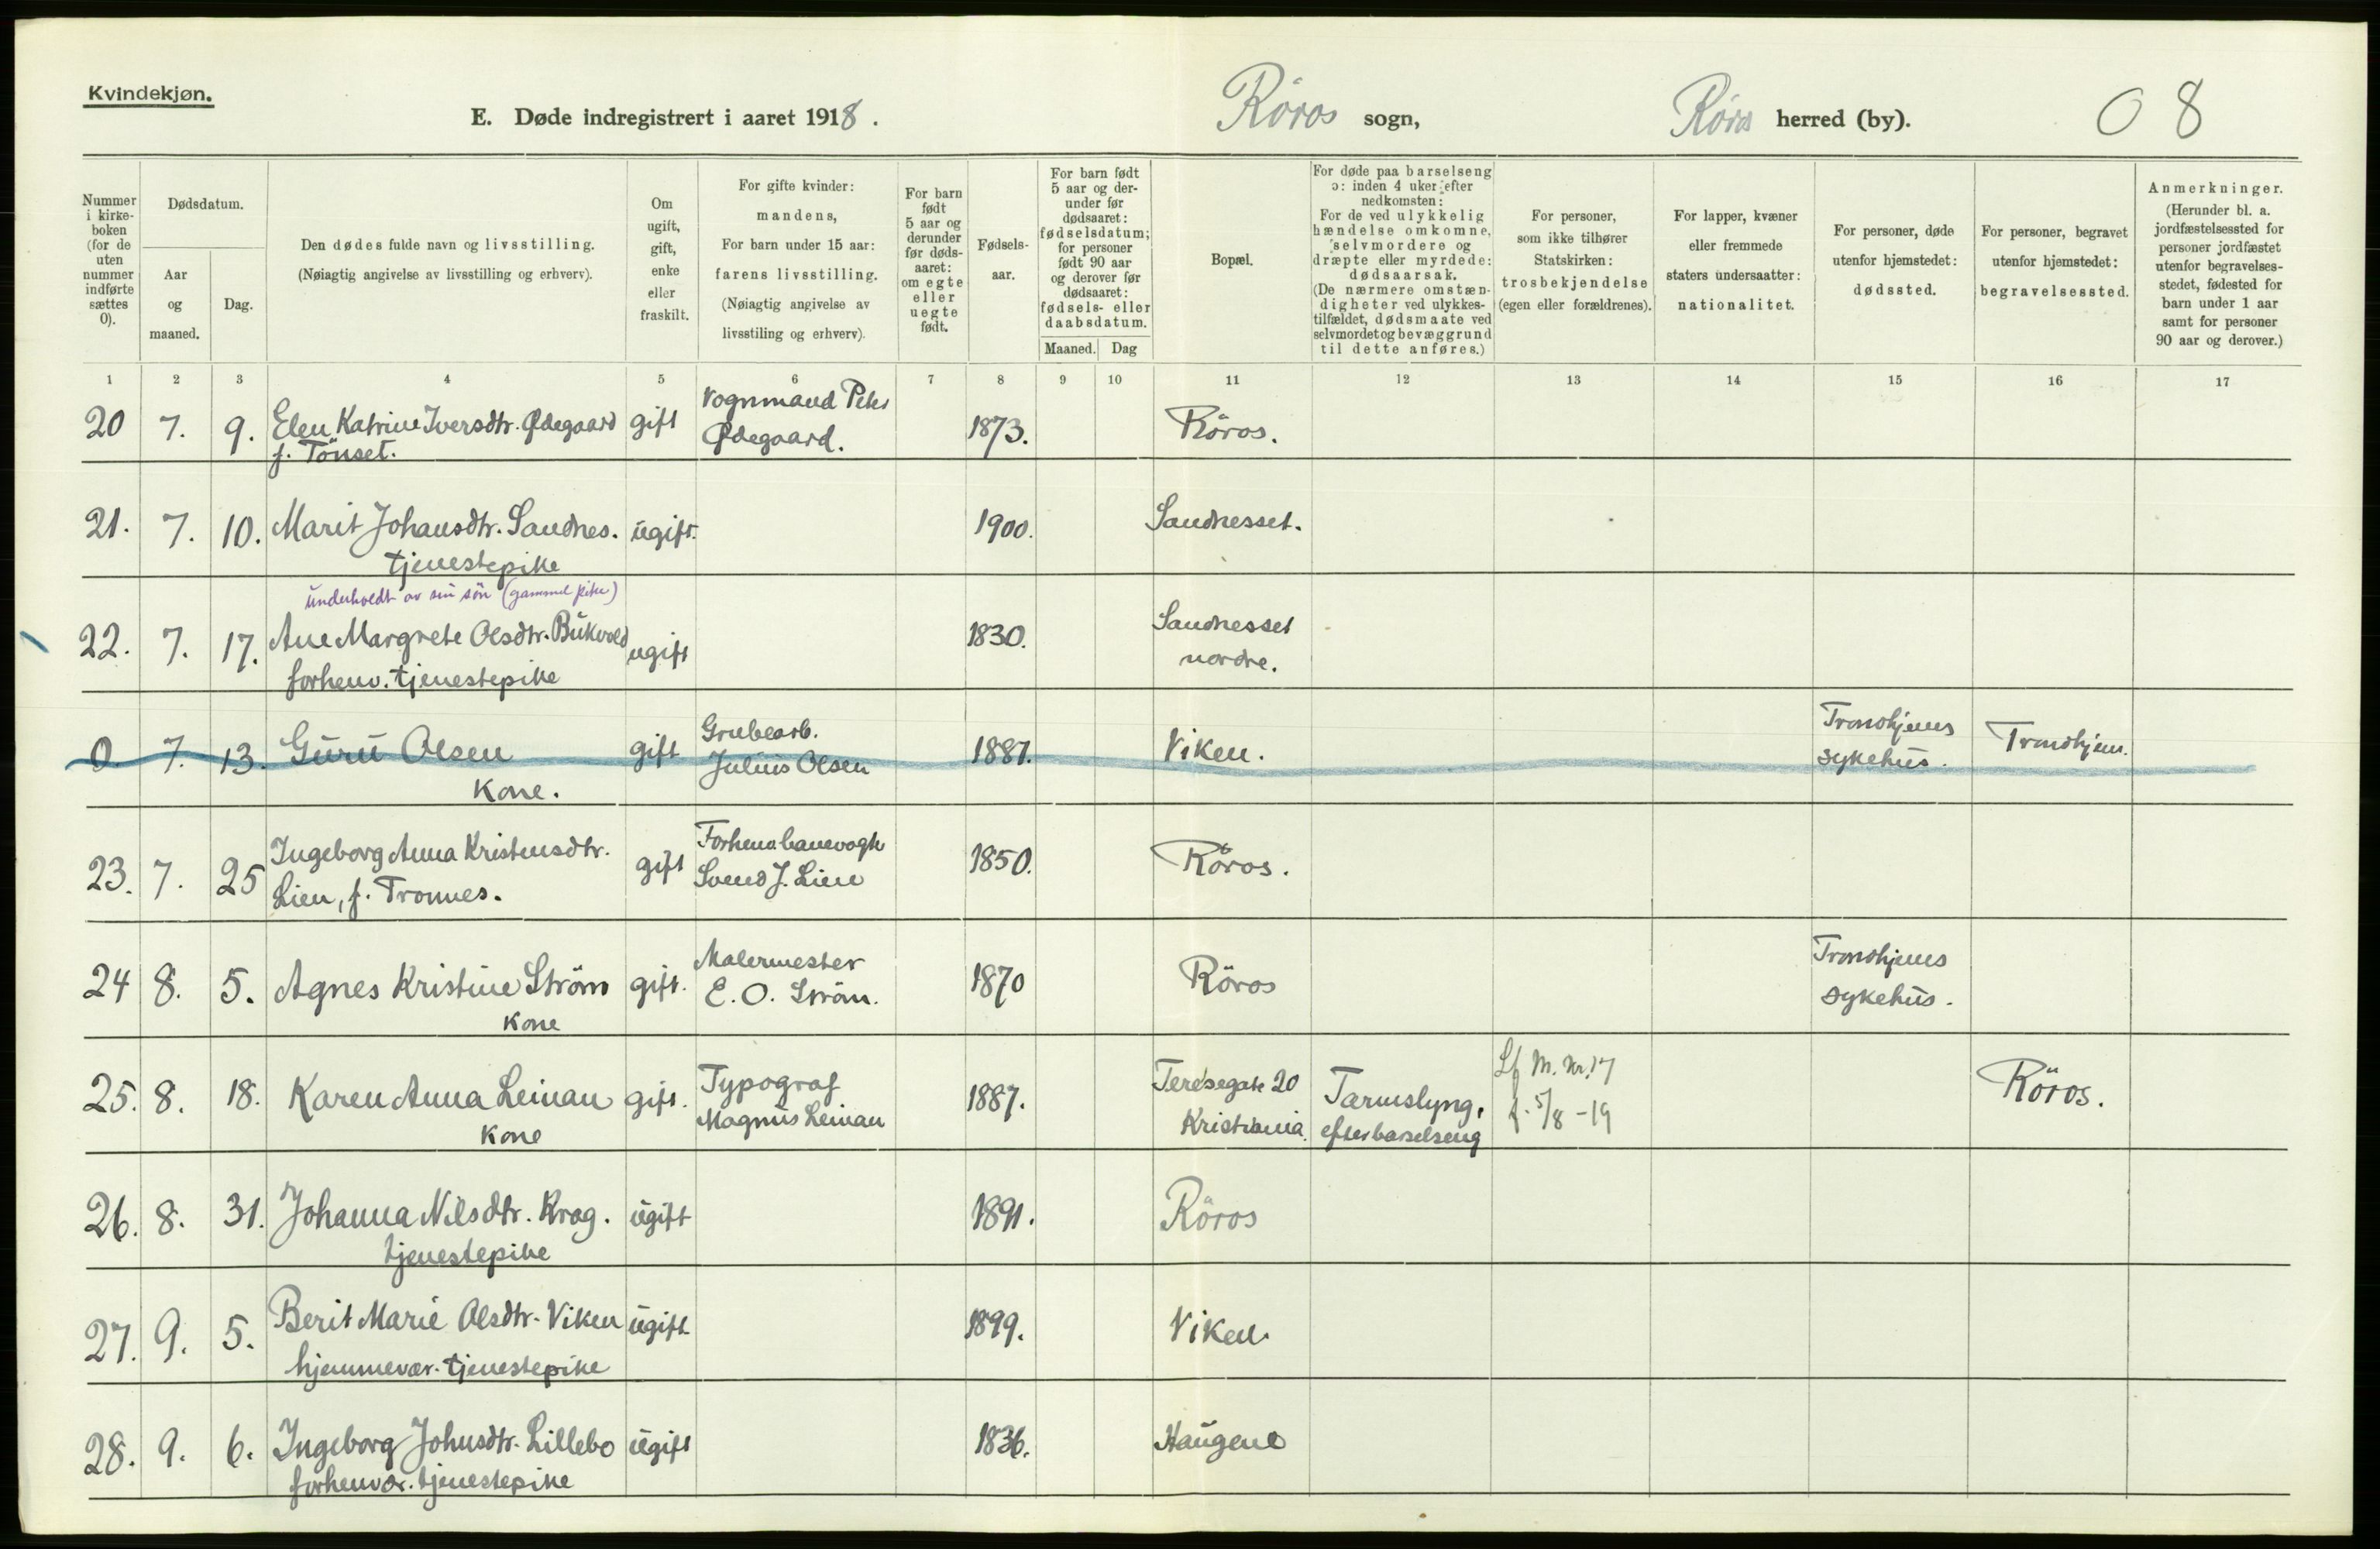 Kvindekjøn.
E. Døde indregistrert i aaret 1918. Röros sogn, Röros herred (by). 08
Nummer i kirke-boken (for de uten nummer indførte sættes 0).
Dødsdatum.
Aar og maaned.
Dag.
Den dødes fulde navn og livsstilling.
(Nøiagtig angivelse av livsstilling og erhverv).
Om ugift, gift, enke eller fraskilt.
For gifte kvinder: mandens,
For barn under 15 aar: farens livsstilling.
(Nøiagtig angivelse av livsstiling og erhverv).
For barn født 5 aar og derunder før døds-aaret: om egte eller uegte født.
Fødsels-aar.
For barn født 5 aar og der-under før dødsaaret: fødselsdatum; for personer født 90 aar og derover før dødsaaret: fødsels- eller daabsdatum.
Maaned. Dag
Bopæl.
For døde paa barselseng ɔ: inden 4 uker efter nedkomsten:
For de ved ulykkelig hændelse omkomne, selvmordere og dræpte eller myrdede: dødsaarsak.
(De nærmere omstæn-digheter ved ulykkes-tilfældet, dødsmaate ved selvmordet og bevæggrund til dette anføres.)
For personer, som ikke tilhører Statskirken: trosbekjendelse (egen eller forældrenes).
For lapper, kvæner eller fremmede staters undersaatter: nationalitet.
For personer, døde utenfor hjemstedet: dødssted.
For personer, begravet utenfor hjemstedet: begravelsessted.
Anmerkninger.
(Herunder bl. a. jordfæstelsessted for personer jordfæstet utenfor begravelses-stedet, fødested for barn under 1 aar samt for personer 90 aar og derover.)
1 2 3 4 5 6 7 8 9 10 11 12 13 14 15 16 17
20 7. 9. Elen Katrine Iversdtr. Ødegaard gift Vognmand Peter 1873. Röros.
f. Tönset. Ødegaard.
21. 7. 10. Marit Johansdtr. Sandnes. ugift. 1900. Sandnesset.
tjenestepike
underholdt av sin sön (gammel pike)
22. 7. 17. Ane Margrete Olsdtr. Bukvold ugift 1830. Sandnesset
forhenv. tjenestepike nordre.
0. 7. 13. Guru Olsen gift Grubearb. 1881. Viken. Trondhjems Trondhjem.
Kone. Julius Olsen sykehus.
23. 7. 25 Ingeborg Anna Kristensdtr. gift Forhenv. banevogt 1850. Röros.
Lien, f. Tronnes. Svend J. Lien
24 8. 5. Agnes Kristine Ström gift. Malermester 1870 Röros Trondhjems
Kone E. O. Ström. sykehus.
25. 8. 18. Karen Anna Leinan gift. Typograf 1887. Teresegate 20 Tarmslyng, Lf M. Nr. 17 Röros.
Kone Magnus Leinan Kristiania. efter barselseng f. 5/8 - 19
26. 8. 31. Johanna Nilsdtr. Krog. ugift 1891. Röros
tjenestepike
27. 9. 5. Berit Marie Olsdtr. Viken ugift 1899. Viken
hjemmevær. tjenestepike
28. 9. 6. Ingeborg Johnsdtr. Lillebo ugift 1836. Haugene
forhenvær. tjenestepike